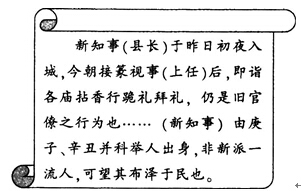 新知事(县长)于昨日初夜入
城,今朝接篆视事(上任)后,即诣
各庙拈香行跪礼拜礼,仍是旧官
僚之行为也……(新知事)由庚
子、辛丑并科举人出身,非新派一
流人,可望其布泽于民也。